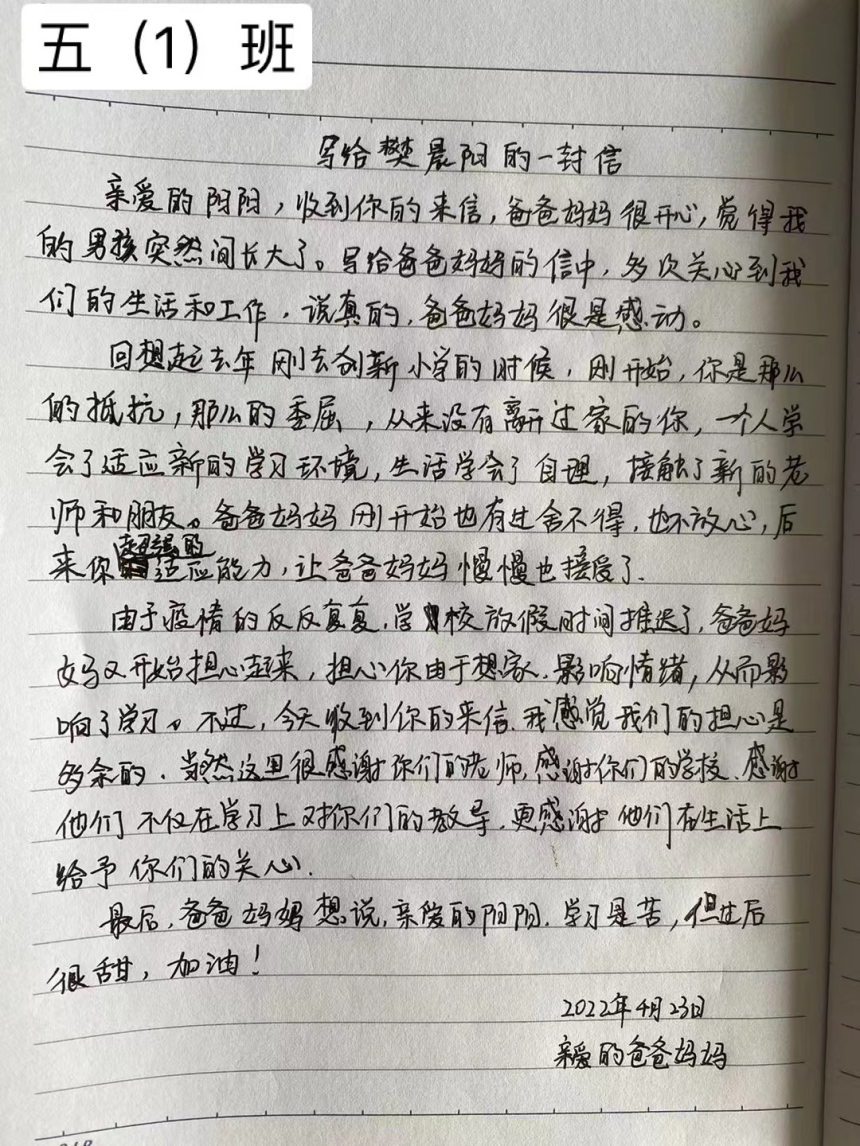 五（1）班
写给樊晨阳的一封信
亲爱的阳阳，收到你的来信，爸爸妈妈很开心，觉得我
的男孩突然间长大了。写给爸爸妈妈的信中，多次关心到我
们的生活和工作，说真的，爸爸妈妈很是感动。
回想起去年刚去创新小学的时候，刚开始，你是那么
的抵抗，那么的委屈，从来没有离开过家的你，一个人学
会了适应新的学习环境，生活学会了自理，接触了新的老
师和朋友。爸爸妈妈刚开始也有过舍不得，也不放心，后
来你超强的适应能力，让爸爸妈妈慢慢也接受了.
由于疫情的反反复复，学校放假时间推迟了，爸爸妈
妈又开始担心起来，担心你由于想家.影响情绪，从而影
响了学习。不过，今天收到你的来信.我感觉我们的担心是
多余的.当然这里很感谢你们的老师，感谢你们的学校、感谢
他们不仅在学习上对你们的教导.更感谢他们在生活上
给予你们的关心.
最后，爸爸妈妈想说，亲爱的阳阳.学习是苦，但过后
很甜，加油！
2022年4月23日
亲爱的爸爸妈妈